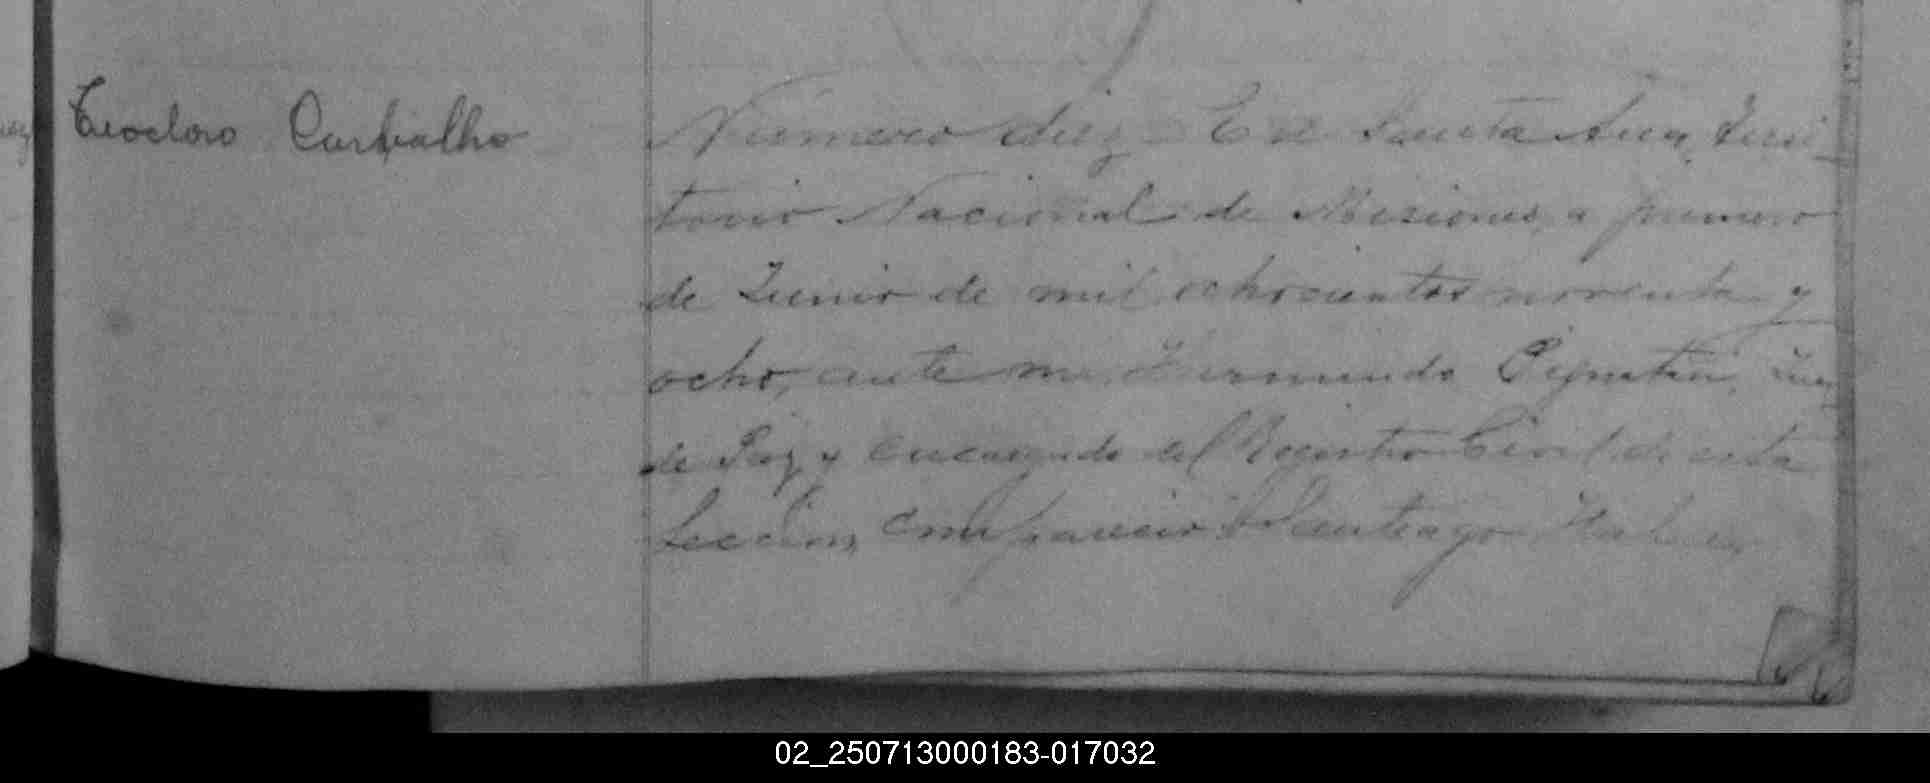 Teodoro Carvalho
Número diez En Santa Ana, Terri-
torio Nacional de Misiones, a primero
de Junio de mil ochocientos noventa y
ocho, ante mi, Juez
de Paz y encargado del Registro Civil de esta
Sección, compareció Santiago
02_250713000183-017032